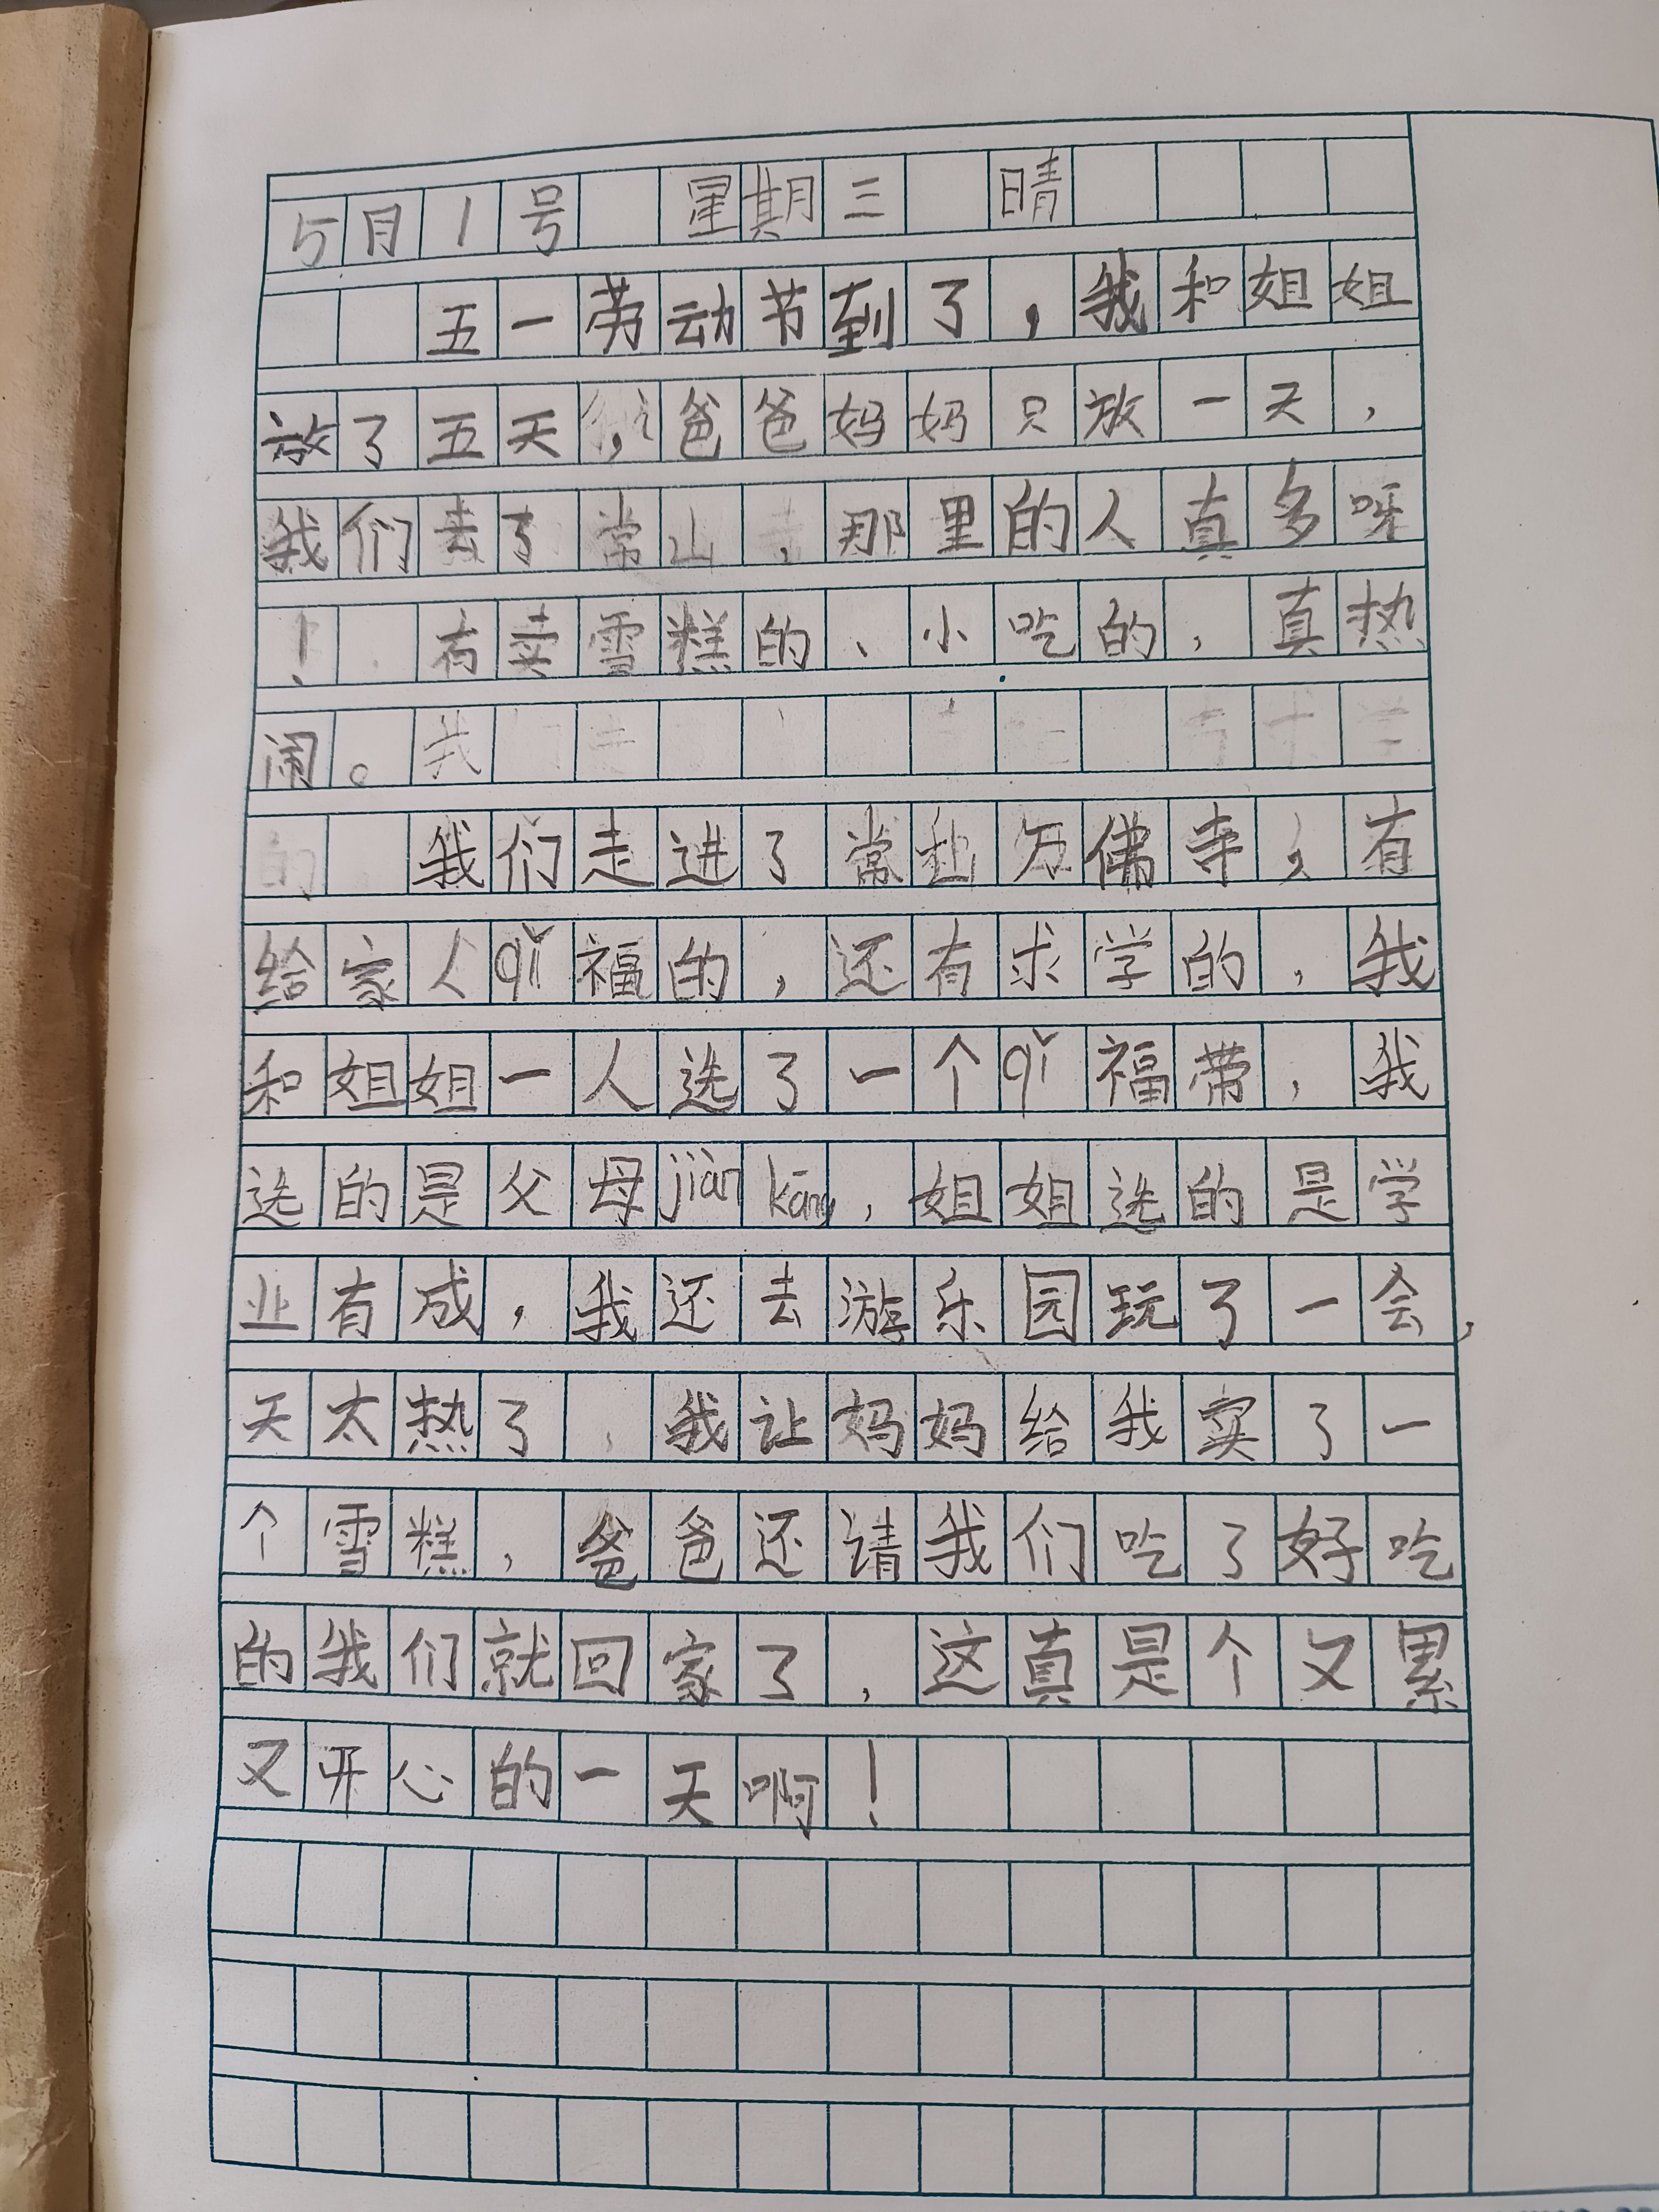 5月1号 星期三 晴
五一劳动节到了，我和姐姐
放了五天，爸爸妈妈只放一天，
我们去了常山，那里的人真多呀
！有卖雪糕的、小吃的，真热
闹。我
的 我们走进了常山万佛寺，有
给家人qǐ福的，还有求学的，我
和姐姐一人选了一个qǐ福带，我
选的是父母jiàn kāng，姐姐选的是学
业有成，我还去游乐园玩了一会，
天太热了，我让妈妈给我卖了一
个雪糕，爸爸还请我们吃了好吃
的我们就回家了，这真是个又累
又开心的一天啊！